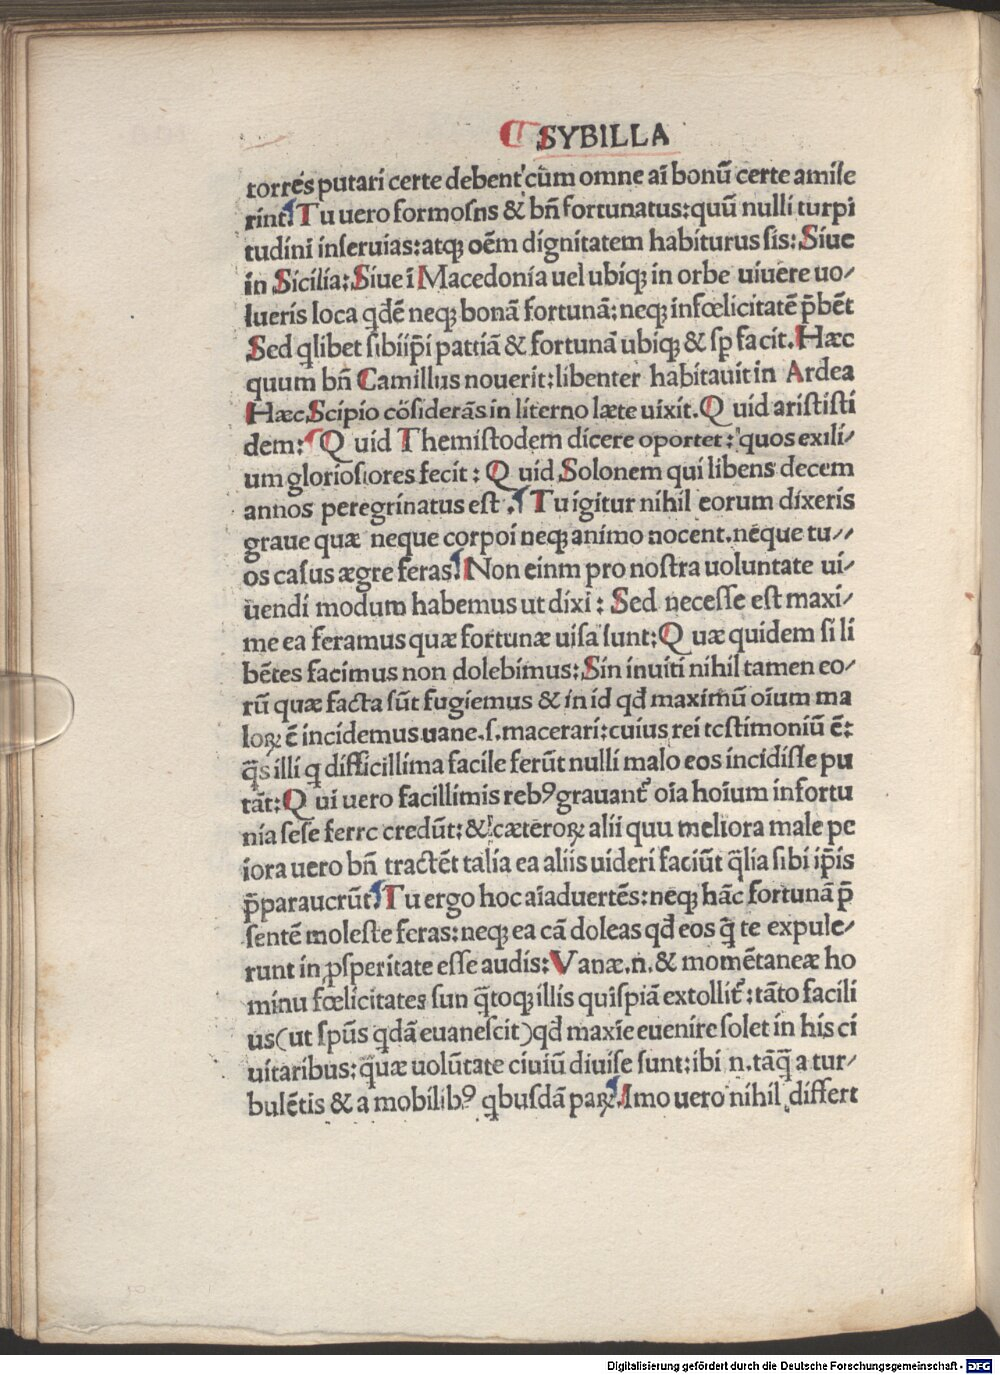 SYBILLA
torres putari certe debent cũm omne aĩ bonũ certe amise
rint. Tu uero formosns & bñ fortunatus: quũ nulli turpi
tudini inseruias: atqꝫ oẽm dignitatem habiturus sis: Siue
in Sicilia: Siue ĩ Macedonia uel ubiqꝫ in orbe uiuere uo/
lueris loca qdẽ neqꝫ bonã fortunã: neqꝫ infœlicitatẽ p̃bẽt
Sed qlibet sibiip̃i pattiã & fortunã ubiqꝫ & sp facit. Hæc
quum bñ Camillus nouerit: libenter habitauit in Ardea
Hæc Scipio cõsiderãs in literno læte uixit. Quid arististi
dem: Quid Themistodem dicere oportet: quos exili/
um gloriosiores fecit: Quid Solonem qui libens decem
annos peregrinatus est. Tu igitur nihil eorum dixeris
graue quæ neque corpoi neqꝫ animo nocent. neque tu//
os casus ægre feras. Non einm pro nostra uoluntate ui/
uendi modum habemus ut dixi: Sed necesse est maxi/
me ea feramus quæ fortunæ uisa sunt: Quæ quidem si li
bẽtes facimus non dolebimus: Sin inuiti nihil tamen eo/
rũ quæ facta sũt fugiemus & in id qđ maximũ oĩum ma
loꝝ ẽ incidemus uane. s. macerari: cuius rei tcstimoniũ ẽ:
q̃s illi q difficillima facile ferũt nulli malo eos incidisse pu
tãt: Qui uero facillimis rebꝰ grauant᷑ oĩa hoĩum infortu
nia sese ferrc credũt: & cæteroꝝ alii quu meliora male pe
iora uero bñ tractẽt talia ea aliis uideri faciũt q̃lia sibi ip̃is
p̃paraucrũt. Tu ergo hoc aĩaduertẽs: neqꝫ hãc fortunã p̃
sentẽ moleste feras: neqꝫ ea cã doleas qđ eos q̃ te expule/
runt in ꝓsperitate esse audis: Vanæ. n. & momẽtaneæ ho
minu fœlicitates sun q̃toqꝫ illis quispiã extollit᷑: tãto facili
us (ut spũs qdã euanescit) qđ maxĩe euenire solet in his ci
uitaribus: quæ uolũtate ciuiũ diuise sunt: ibi n. tãq̃ a tur/
bulẽtis & a mobilibꝰ qbusdã paꝝ. Imo uero nihil differt
Digitalisierung gefördert durch die Deutsche Forschungsgemeinschaft - DFG